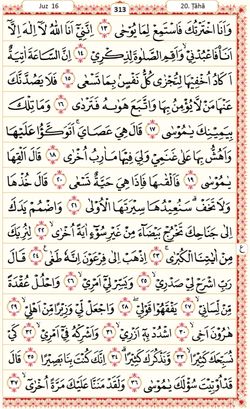 Juz 16
313
20. Ṭāhā
وَاَنَا اخْتَرْتُكَ فَاسْتَمِعْ لِمَا يُوْحٰى ١٣ اِنَّنِيْٓ اَنَا اللّٰهُ لَآ اِلٰهَ اِلَّآ
اَنَا فَاعْبُدْنِيْ وَاَقِمِ الصَّلٰوةَ لِذِكْرِيْ ١٤ اِنَّ السَّاعَةَ اٰتِيَةٌ
اَكَادُ اُخْفِيْهَا لِتُجْزٰى كُلُّ نَفْسٍۭ بِمَا تَسْعٰى ١٥ فَلَا يَصُدَّنَّكَ
عَنْهَا مَنْ لَّا يُؤْمِنُ بِهَا وَاتَّبَعَ هَوٰىهُ فَتَرْدٰى ١٦ وَمَا تِلْكَ
بِيَمِيْنِكَ يٰمُوْسٰى ١٧ قَالَ هِيَ عَصَايَ اَتَوَكَّؤُا عَلَيْهَا
وَاَهُشُّ بِهَا عَلٰى غَنَمِيْ وَلِيَ فِيْهَا مَاٰرِبُ اُخْرٰى ١٨ قَالَ اَلْقِهَا
يٰمُوْسٰى ١٩ فَاَلْقٰىهَا فَاِذَا هِيَ حَيَّةٌ تَسْعٰى ٢٠ قَالَ خُذْهَا
وَلَا تَخَفْ سَنُعِيْدُهَا سِيْرَتَهَا الْاُوْلٰى ٢١ وَاضْمُمْ يَدَكَ
اِلٰى جَنَاحِكَ تَخْرُجْ بَيْضَآءَ مِنْ غَيْرِ سُوْٓءٍ اٰيَةً اُخْرٰى ٢٢ لِنُرِيَكَ
مِنْ اٰيٰتِنَا الْكُبْرٰى ٢٣ اِذْهَبْ اِلٰى فِرْعَوْنَ اِنَّهٗ طَغٰى ٢٤ قَالَ
رَبِّ اشْرَحْ لِيْ صَدْرِيْ ٢٥ وَيَسِّرْ لِيْٓ اَمْرِيْ ٢٦ وَاحْلُلْ عُقْدَةً
مِّنْ لِّسَانِيْ ٢٧ يَفْقَهُوْا قَوْلِيْ ٢٨ وَاجْعَلْ لِّيْ وَزِيْرًا مِّنْ اَهْلِيْ ٢٩
هٰرُوْنَ اَخِى ٣٠ اشْدُدْ بِهٖٓ اَزْرِيْ ٣١ وَاَشْرِكْهُ فِيْٓ اَمْرِيْ ٣٢ كَيْ
نُسَبِّحَكَ كَثِيْرًا ٣٣ وَّنَذْكُرَكَ كَثِيْرًا ٣٤ اِنَّكَ كُنْتَ بِنَا بَصِيْرًا ٣٥ قَالَ
قَدْ اُوْتِيْتَ سُؤْلَكَ يٰمُوْسٰى ٣٦ وَلَقَدْ مَنَنَّا عَلَيْكَ مَرَّةً اُخْرٰٓى ٣٧